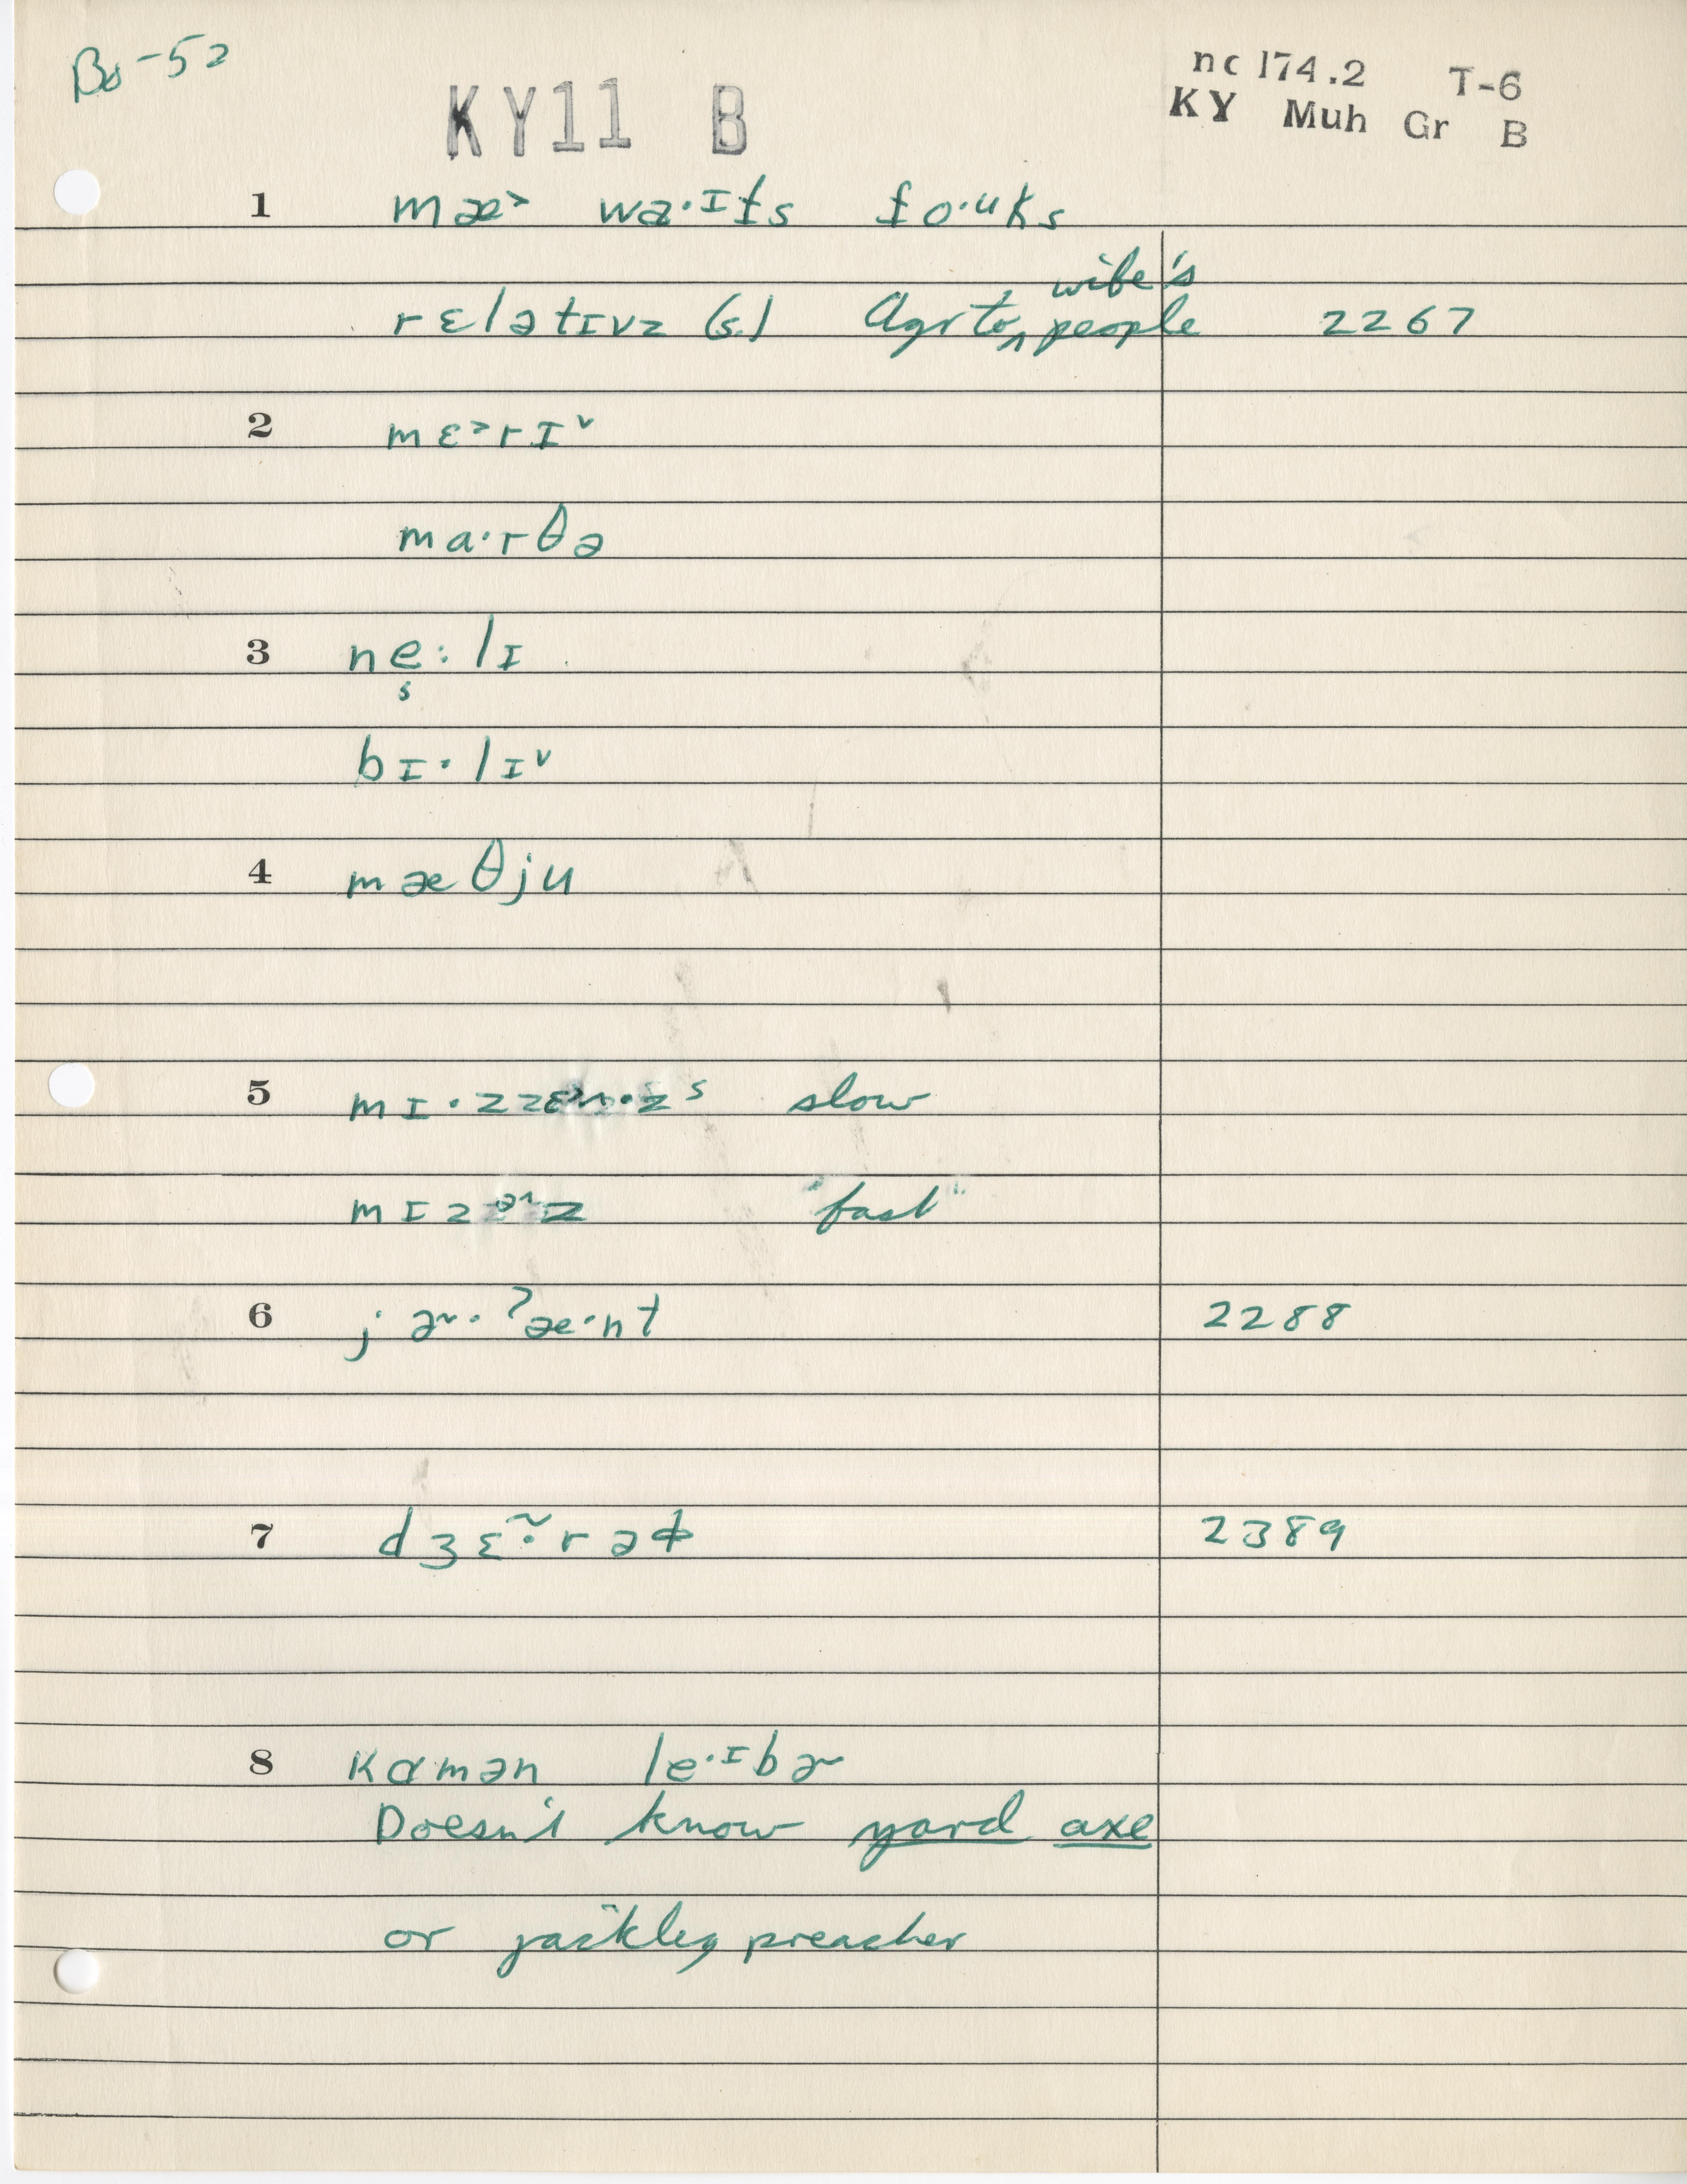 Bo-52
KY11 B
nc 174.2 T-6
KY Muh Gr B
1 mæ˃ wa·ɪfs fo·ʊks
wife's
rɛlətɪvz (s.) Agr to ‸ people 2267
2 mɛ˃rɪ˅
ma·rθə
3 ne̜ː lɪ
bɪ· lɪ˅
4 mæθju
5 mɪ·zzɛ˃n·z s slow
mɪzəz "fast"
6 jɚ· ʔæ·nt 2288
7 dʒɛ̃·rəɸ 2389
8 kɑmən le·ɪbɚ
Doesn't know yard axe
or jackleg preacher